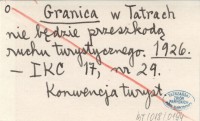 o Granica w Tatrach
nie będzie przeszkodą
ruchu turystycznego. 1926.
– IKC 17, nr 29.
Konwencja turyst.